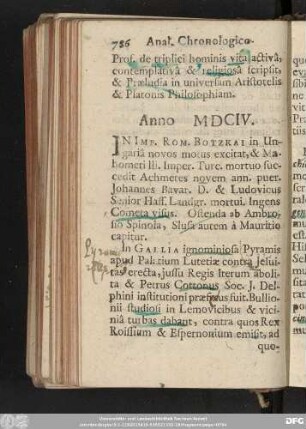 756 Anal. Chronologico-
Prof. de triplici hominis vita activâ,
contemplativâ & religiosâ scripsit,
& Præludia in universam Aristotelis
& Platonis Philosophiam.
Anno MDCIV.
IN IMP. ROM. BOTZKAI in Un-
gariâ novos motus excitat, & Ma-
hometi III. Imper. Turc. mortuo suc-
cedit Achmetes novem ann. puer.
Johannes Bavar. D. & Ludovicus
Senior Hass. Landgr. mortui. Ingens
Cometa visus. Ostenda ab Ambro-
sio Spinola, Slusa autem à Mauritio
capitur.
In GALLIA ignominiosa Pyramis
apud Palatium Lutetiæ contra Jesui-
tas erecta, jussu Regis iterum aboli-
ta & Petrus Cottonus Soc. J. Del-
phini institutioni præfectus fuit. Bullio-
nii studiosi in Lemovicibus & vici-
niâ turbas dabant, contra quos Rex
Roissium & Espernonium emisit, ad
quo-